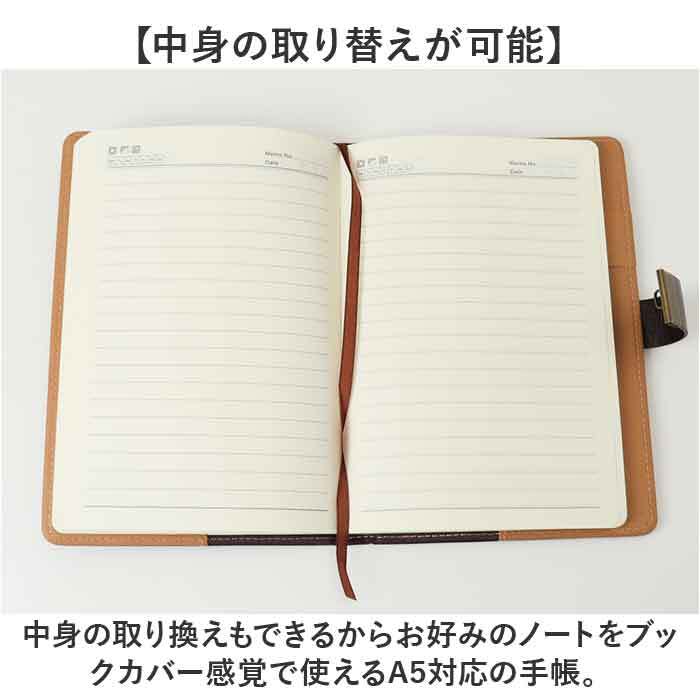 【中身の取り替えが可能】
Memo No.
Date
Memo No.
Date
中身の取り換えもできるからお好みのノートをブッ
クカバー感覚で使えるA5対応の手帳。